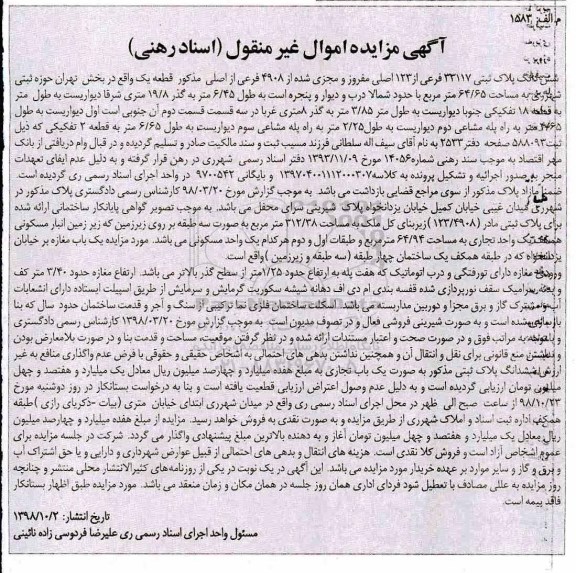 م الف: ۱۵۸۳
آگهی مزایده اموال غیر منقول (اسناد رهنی)
ششدانگ پلاک ثبتی ۳۳۱۱۷ فرعی از۱۲۳ اصلی مفروز و مجزی شده از ۴۹۰۸ فرعی از اصلی مذکور قطعه یک واقع در بخش تهران حوزه ثبتی
شهرری به مساحت ۶۴/۶۵ متر مربع با حدود شمالا درب و دیوار و پنجره است به طول ۶/۴۵ متر به گذر ۱۹/۸ متری شرقا دیواریست به طول متر
به قطعه ۱۸ تفکیکی جنوبا دیواریست به طول ۳/۸۵ متر به گذر ۸متری غربا در سه قسمت قسمت دوم آن جنوبی است اول دیواریست به طول
۴/۶۵ متر به راه پله مشاعی دوم دیواریست به طول۲/۲۵ متر به راه پله مشاعی سوم دیواریست به طول ۶/۶۵ متر به قطعه ۲ تفکیکی که ذیل
ثبت۵۸۸۰۹۳ صفحه دفتر۲۵۳۳ به نام آقای سیف اله سلطانی فرزند مسیب ثبت و سند مالکیت صادر و تسلیم گردیده و در قبال وام دریافتی از بانک
مهر اقتصاد به موجب سند رهنی شماره۱۴۰۵۶ مورخ ۱۳۹۳/۱۱/۰۹ دفتر اسناد رسمی شهرری در رهن قرار گرفته و به دلیل عدم ایفای تعهدات
منجر به صدور اجرائیه و تشکیل پرونده به کلاسه۱۳۹۷۰۴۰۰۱۱۱۲۰۰۰۳۰۷ و بایگانی ۹۷۰۰۵۴۲ در واحد اجرای اسناد رسمی ری گردیده است.
ضمنا مازاد پلاک مذکور از سوی مراجع قضایی بازداشت می باشد به موجب گزارش مورخ ۹۸/۰۳/۲۰ کارشناس رسمی دادگستری پلاک مذکور در
شهرری میدان غیبی خیابان کمیل خیابان یزدانخواه پلاک شیرینی سرای محفل می باشد. به موجب تصویر گواهی پایانکار ساختمانی ارائه شده
برای پلاک ثبتی مادر (۱۲۳/۴۹۰۸) زیربنای کل ملک به مساحت ۳۱۲/۳۸ متر مربع به صورت سه طبقه بر روی زیرزمین که زیر زمین انبار مسکونی
همکف یک واحد تجاری به مساحت ۶۴/۹۴ متر مربع و طبقات اول و دوم هرکدام یک واحد مسکونی می باشد. مورد مزایده یک باب مغازه بر خیابان
یزدانخواه که در طبقه همکف یک ساختمان چهار طبقه (سه طبقه و زیرزمین) واقع است.
ورودی مغازه دارای تورفتگی و درب اتوماتیک که هفت پله به ارتفاع حدود ۱/۲۵متر از سطح گذر بالاتر می باشد. ارتفاع مغازه حدود ۳/۴۰ متر کف
و بدنه سرامیک سقف نورپردازی شده قفسه بندی ام دی اف دهانه شیشه سکوریت گرمایش و سرمایش از طریق اسپیلت ایستاده دارای انشعابات
آب مشترک گاز و برق مجزا و دوربین مداربسته می باشد. اسکلت ساختمان فلزی نما ترکیبی از سنگ و آجر و قدمت ساختمان حدود سال که بنا
بازسازی شده است و به صورت شیرینی فروشی فعال و در تصوف مدیون است. به موجب گزارش مورخ ۱۳۹۸/۰۳/۲۰ کارشناس رسمی دادگستری
با توجه به مراتب فوق و در صورت صحت و اعتبار مستندات ارائه شده و در نظر گرفتن موقعیت، مساحت و قدمت بنا و در صورت بلامعارض بودن
و نداشتن منع قانونی برای نقل و انتقال آن و همچنین نداشتن بدهی های احتمالی به اشخاص حقیقی و حقوقی با فرض عدم واگذاری منافع به غیر
ارزش ششدانگ پلاک ثبتی مذکور به صورت یک باب تجاری به مبلغ هفده میلیارد و چهارصد میلیون ریال معادل یک میلیارد و هفتصد و چهل
میلیون تومان ارزیابی گردیده است و به دلیل عدم وصول اعتراض ارزیابی قطعیت یافته است و بنا به درخواست بستانکار در روز دوشنبه مورخ
۹۸/۱۰/۲۳ از ساعت صبح الی ظهر در محل اجرای اسناد رسمی ری واقع در میدان شهرری ابتدای خیابان متری (بیات -ذکریای رازی) طبقه
همکف اداره ثبت اسناد و املاک شهرری از طریق مزایده و به صورت نقدی به فروش خواهد رسید. مزایده از مبلغ هفده میلیارد و چهارصد میلیون
ریال معادل یک میلیارد و هفتصد و چهل میلیون تومان آغاز و به دهنده بالاترین مبلغ پیشنهادی واگذار می گردد. شرکت در جلسه مزایده برای
عموم اشخاص آزاد است و فروش کلا نقدی است. هزینه های انتقال و بدهی های احتمالی از قبیل عوارض شهرداری و دارایی و یا حق اشتراک آب
و برق و گاز و سایر موارد بر عهده خریدار مورد مزایده می باشد. این آگهی در یک نوبت در یکی از روزنامه‌های کثیرالانتشار محلی منتشر و چنانچه
روز مزایده به عللی مصادف با تعطیل شود فردای اداری همان روز جلسه در همان مکان و زمان منعقد می باشد. مورد مزایده طبق اظهار بستانکار
فاقد بیمه است.
تاریخ انتشار: ۱۳۹۸/۱۰/۲
مسئول واحد اجرای اسناد رسمی ری علیرضا فردوسی زاده نائینی